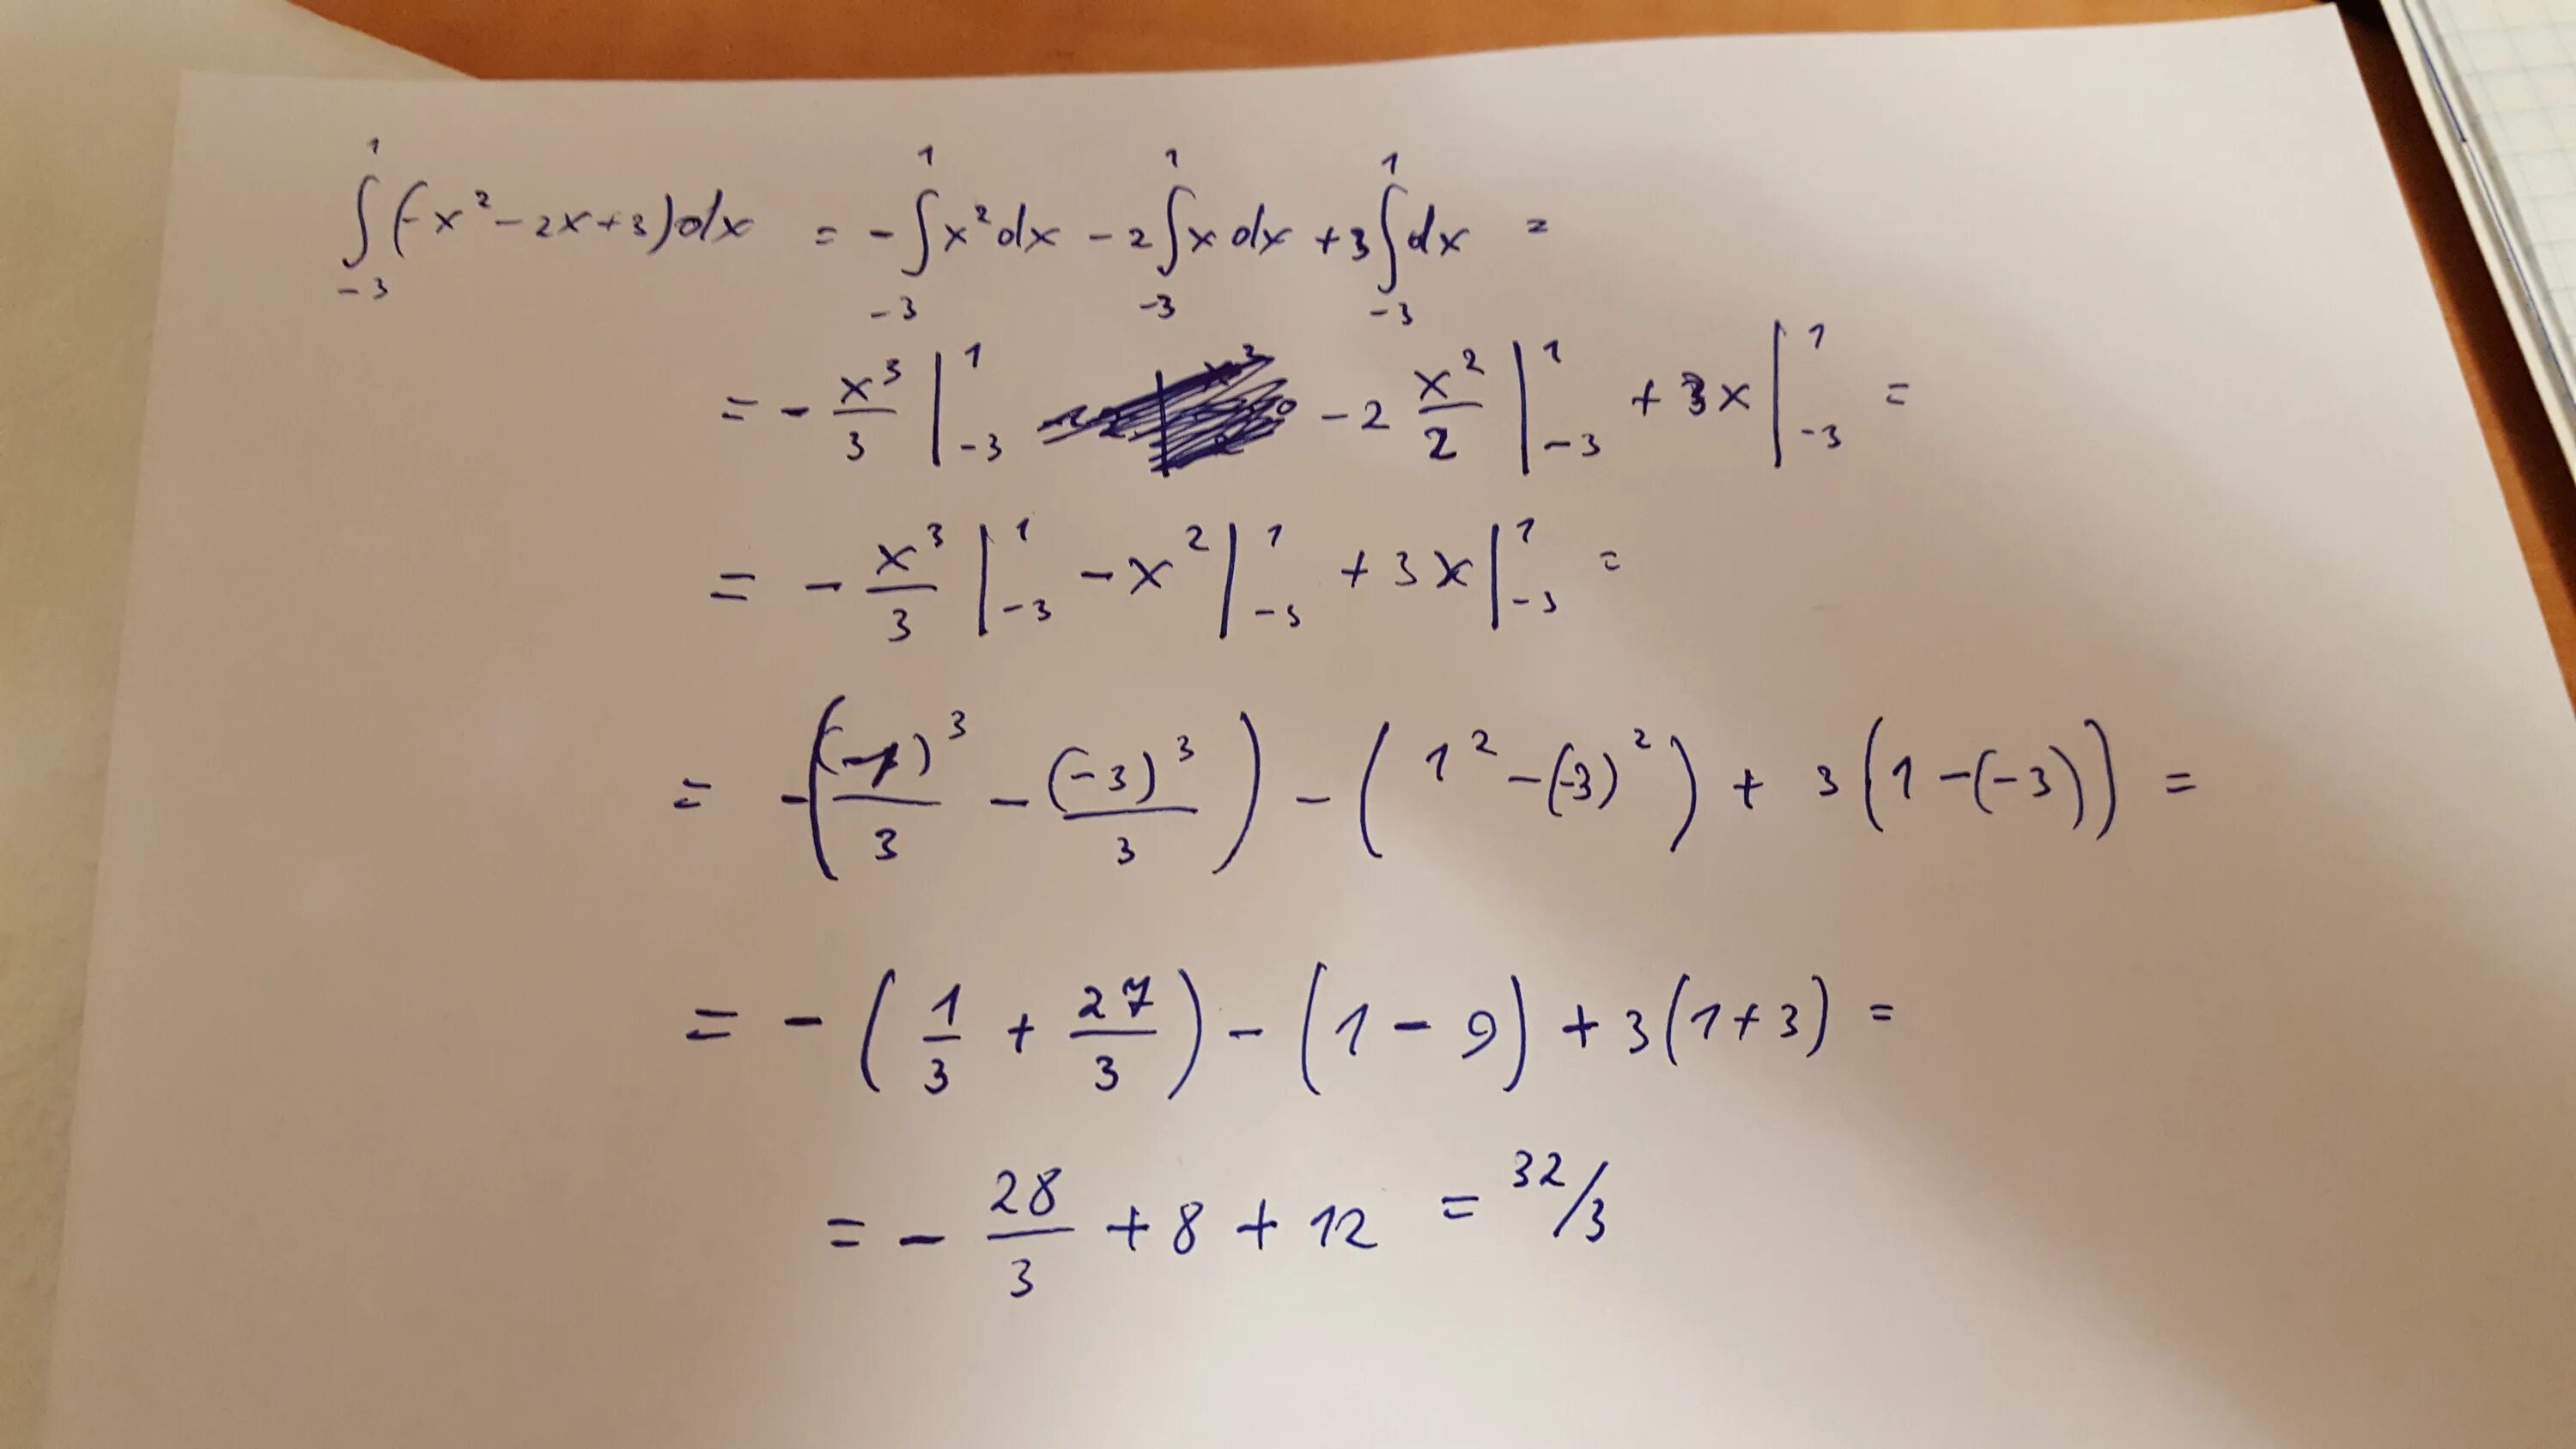 ∫₋₃¹ (-x² - 2x + 3) dx = -∫₋₃¹ x² dx - 2∫₋₃¹ x dx + 3∫₋₃¹ dx =
= - x³/3 |₋₃¹ - 2 x²/2 |₋₃¹ + 3x |₋₃¹ =
= - x³/3 |₋₃¹ - x² |₋₃¹ + 3x |₋₃¹ =
= -((-1)³/3 - (-3)³/3) - (1² - (-3)²) + 3(1 - (-3)) =
= - (1/3 + 27/3) - (1 - 9) + 3(1 + 3) =
= - 28/3 + 8 + 12 = 32/3